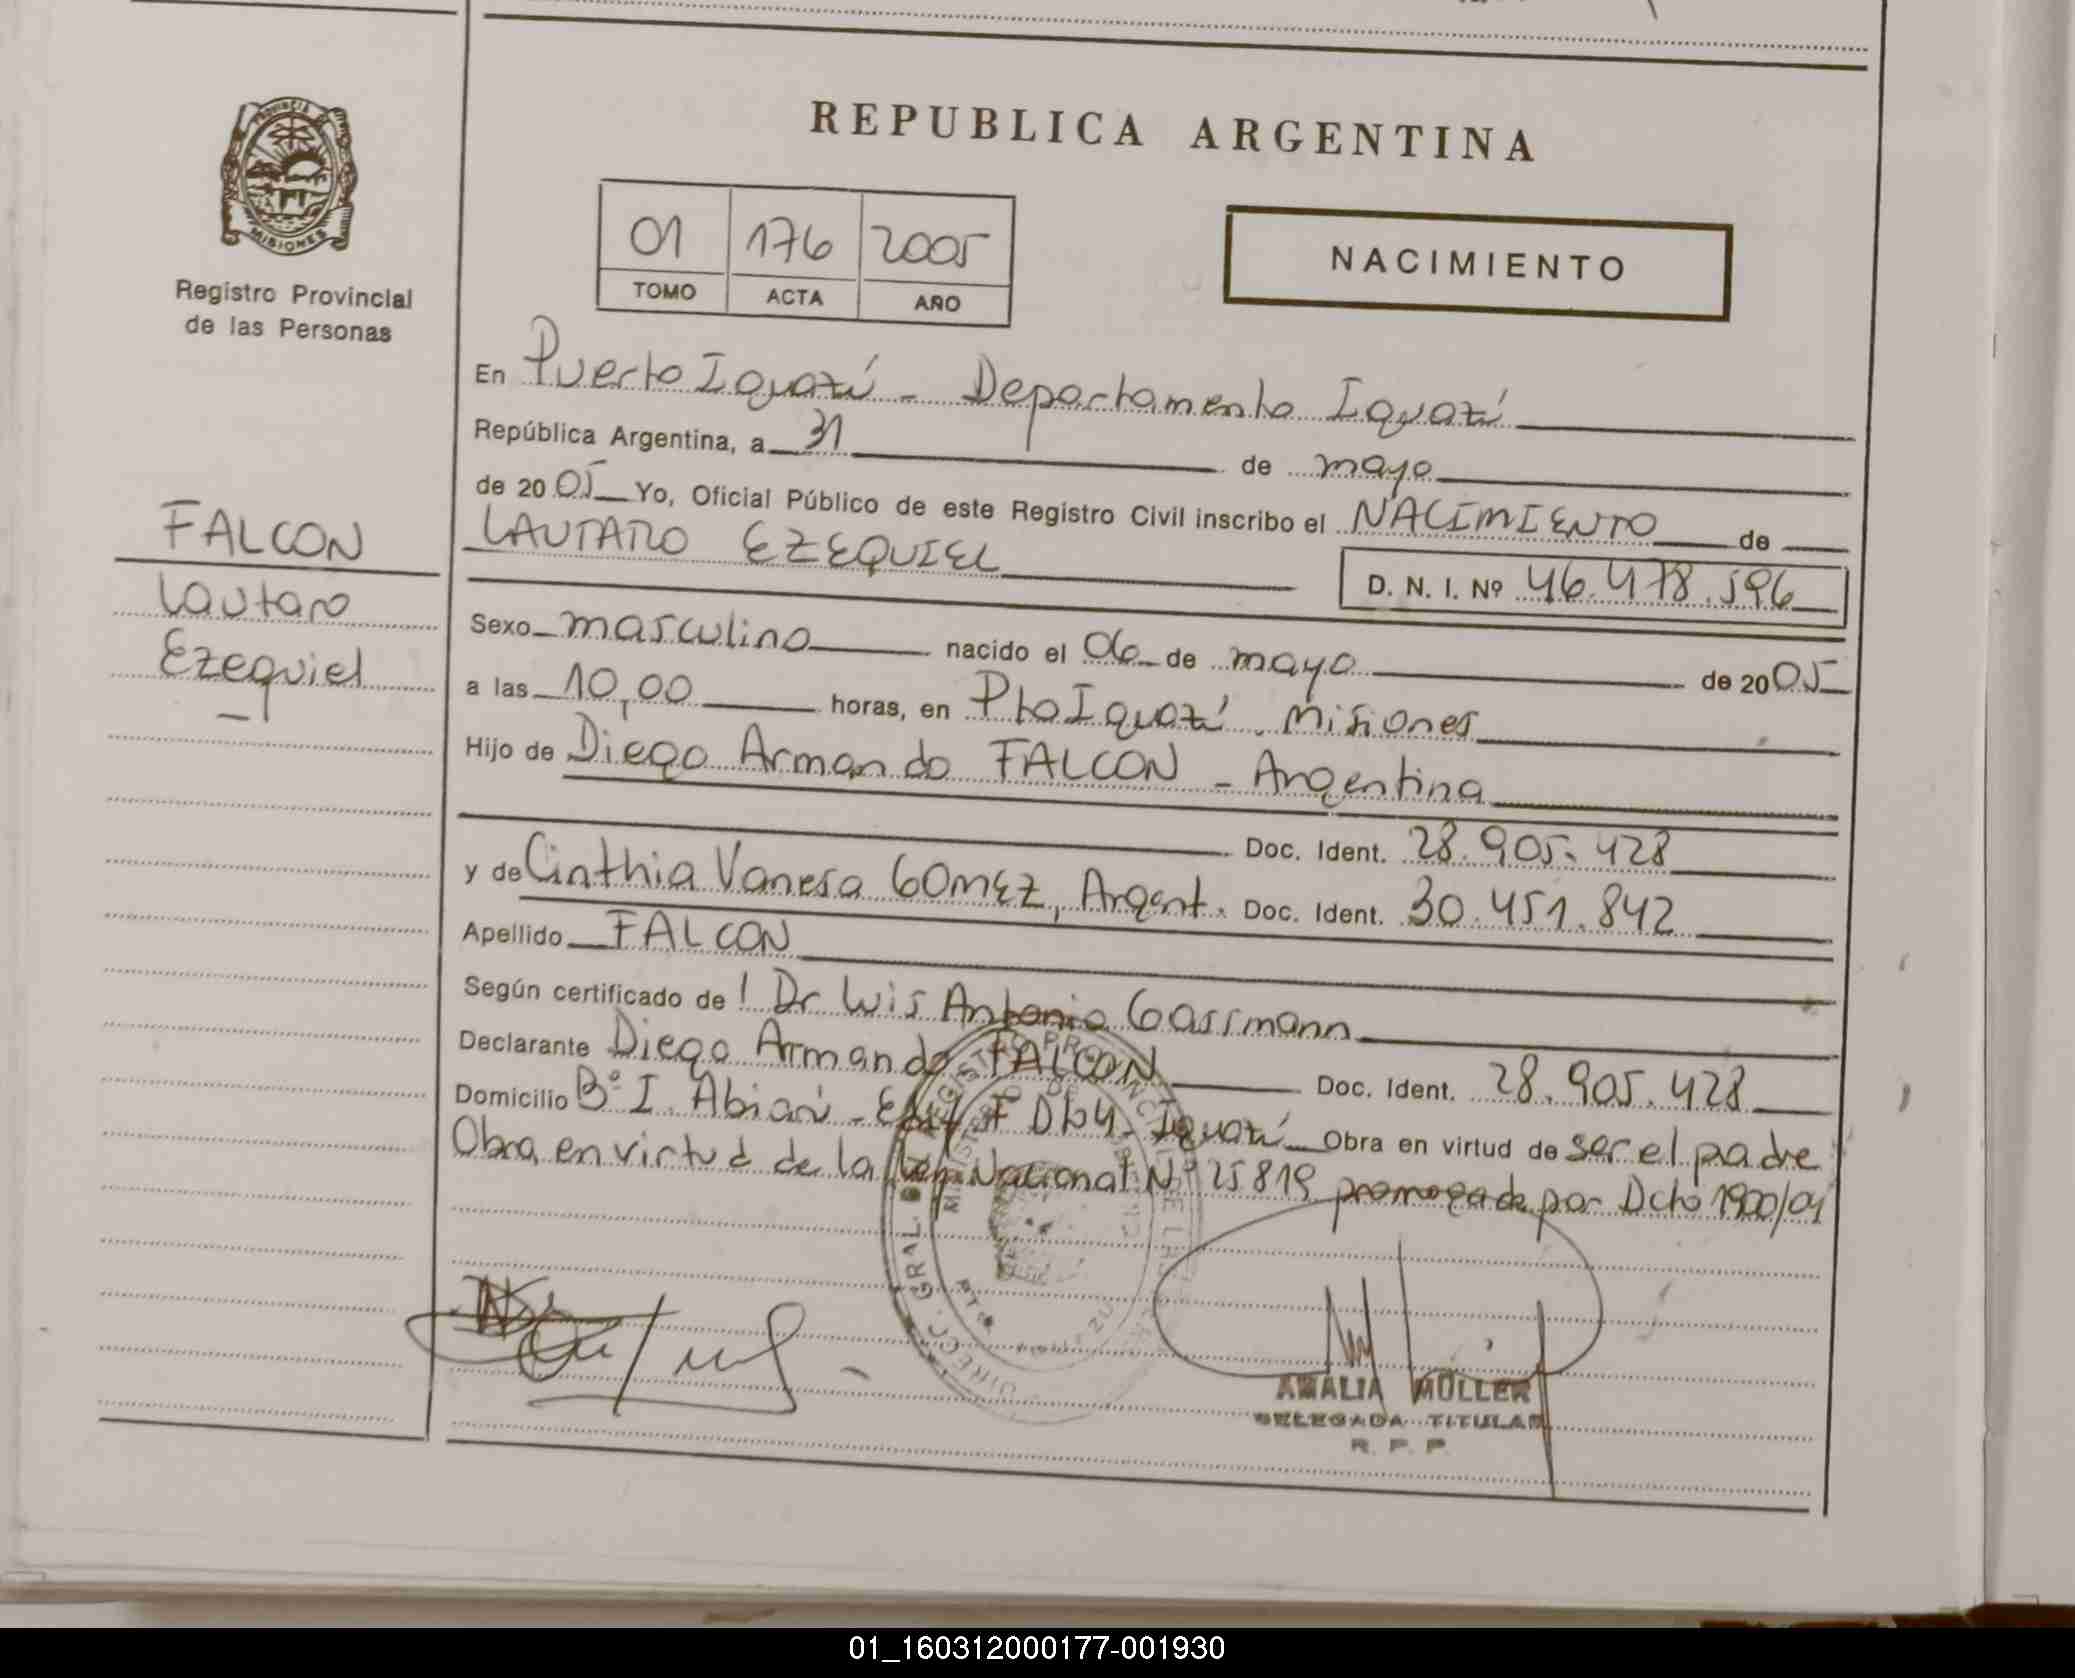 PROVINCIA
MISIONES
Registro Provincial
de las Personas
REPUBLICA ARGENTINA
01 176 2005
TOMO ACTA AÑO
NACIMIENTO
En Puerto Iguazú - Departamento Iguazú
República Argentina, a 31 de mayo
de 2005 Yo, Oficial Público de este Registro Civil inscribo el NACIMIENTO de
LAUTARO EZEQUIEL
D. N. I. Nº 46.478.596
FALCON
Lautaro
Ezequiel
Sexo masculino nacido el 06 de mayo de 2005
a las 10,00 horas, en Pto Iguazú. Misiones
Hijo de Diego Armando FALCON - Argentina
Doc. Ident. 28.905.428
y de Cinthia Vanesa GOMEZ, Argent. Doc. Ident. 30.451.842
Apellido FALCON
Según certificado de ! Dr Luis Antonio Gassmann
Declarante Diego Armando FALCON Doc. Ident. 28.905.428
Domicilio Bº I. Abian - F Dto 4 Iguazú Obra en virtud de ser el padre
Obra en virtud de la Ley Nacional Nº 25819 por Dcto 1900/04
AMALIA MÜLLER
DELEGADA TITULAR
R. P. P.
01_160312000177-001930